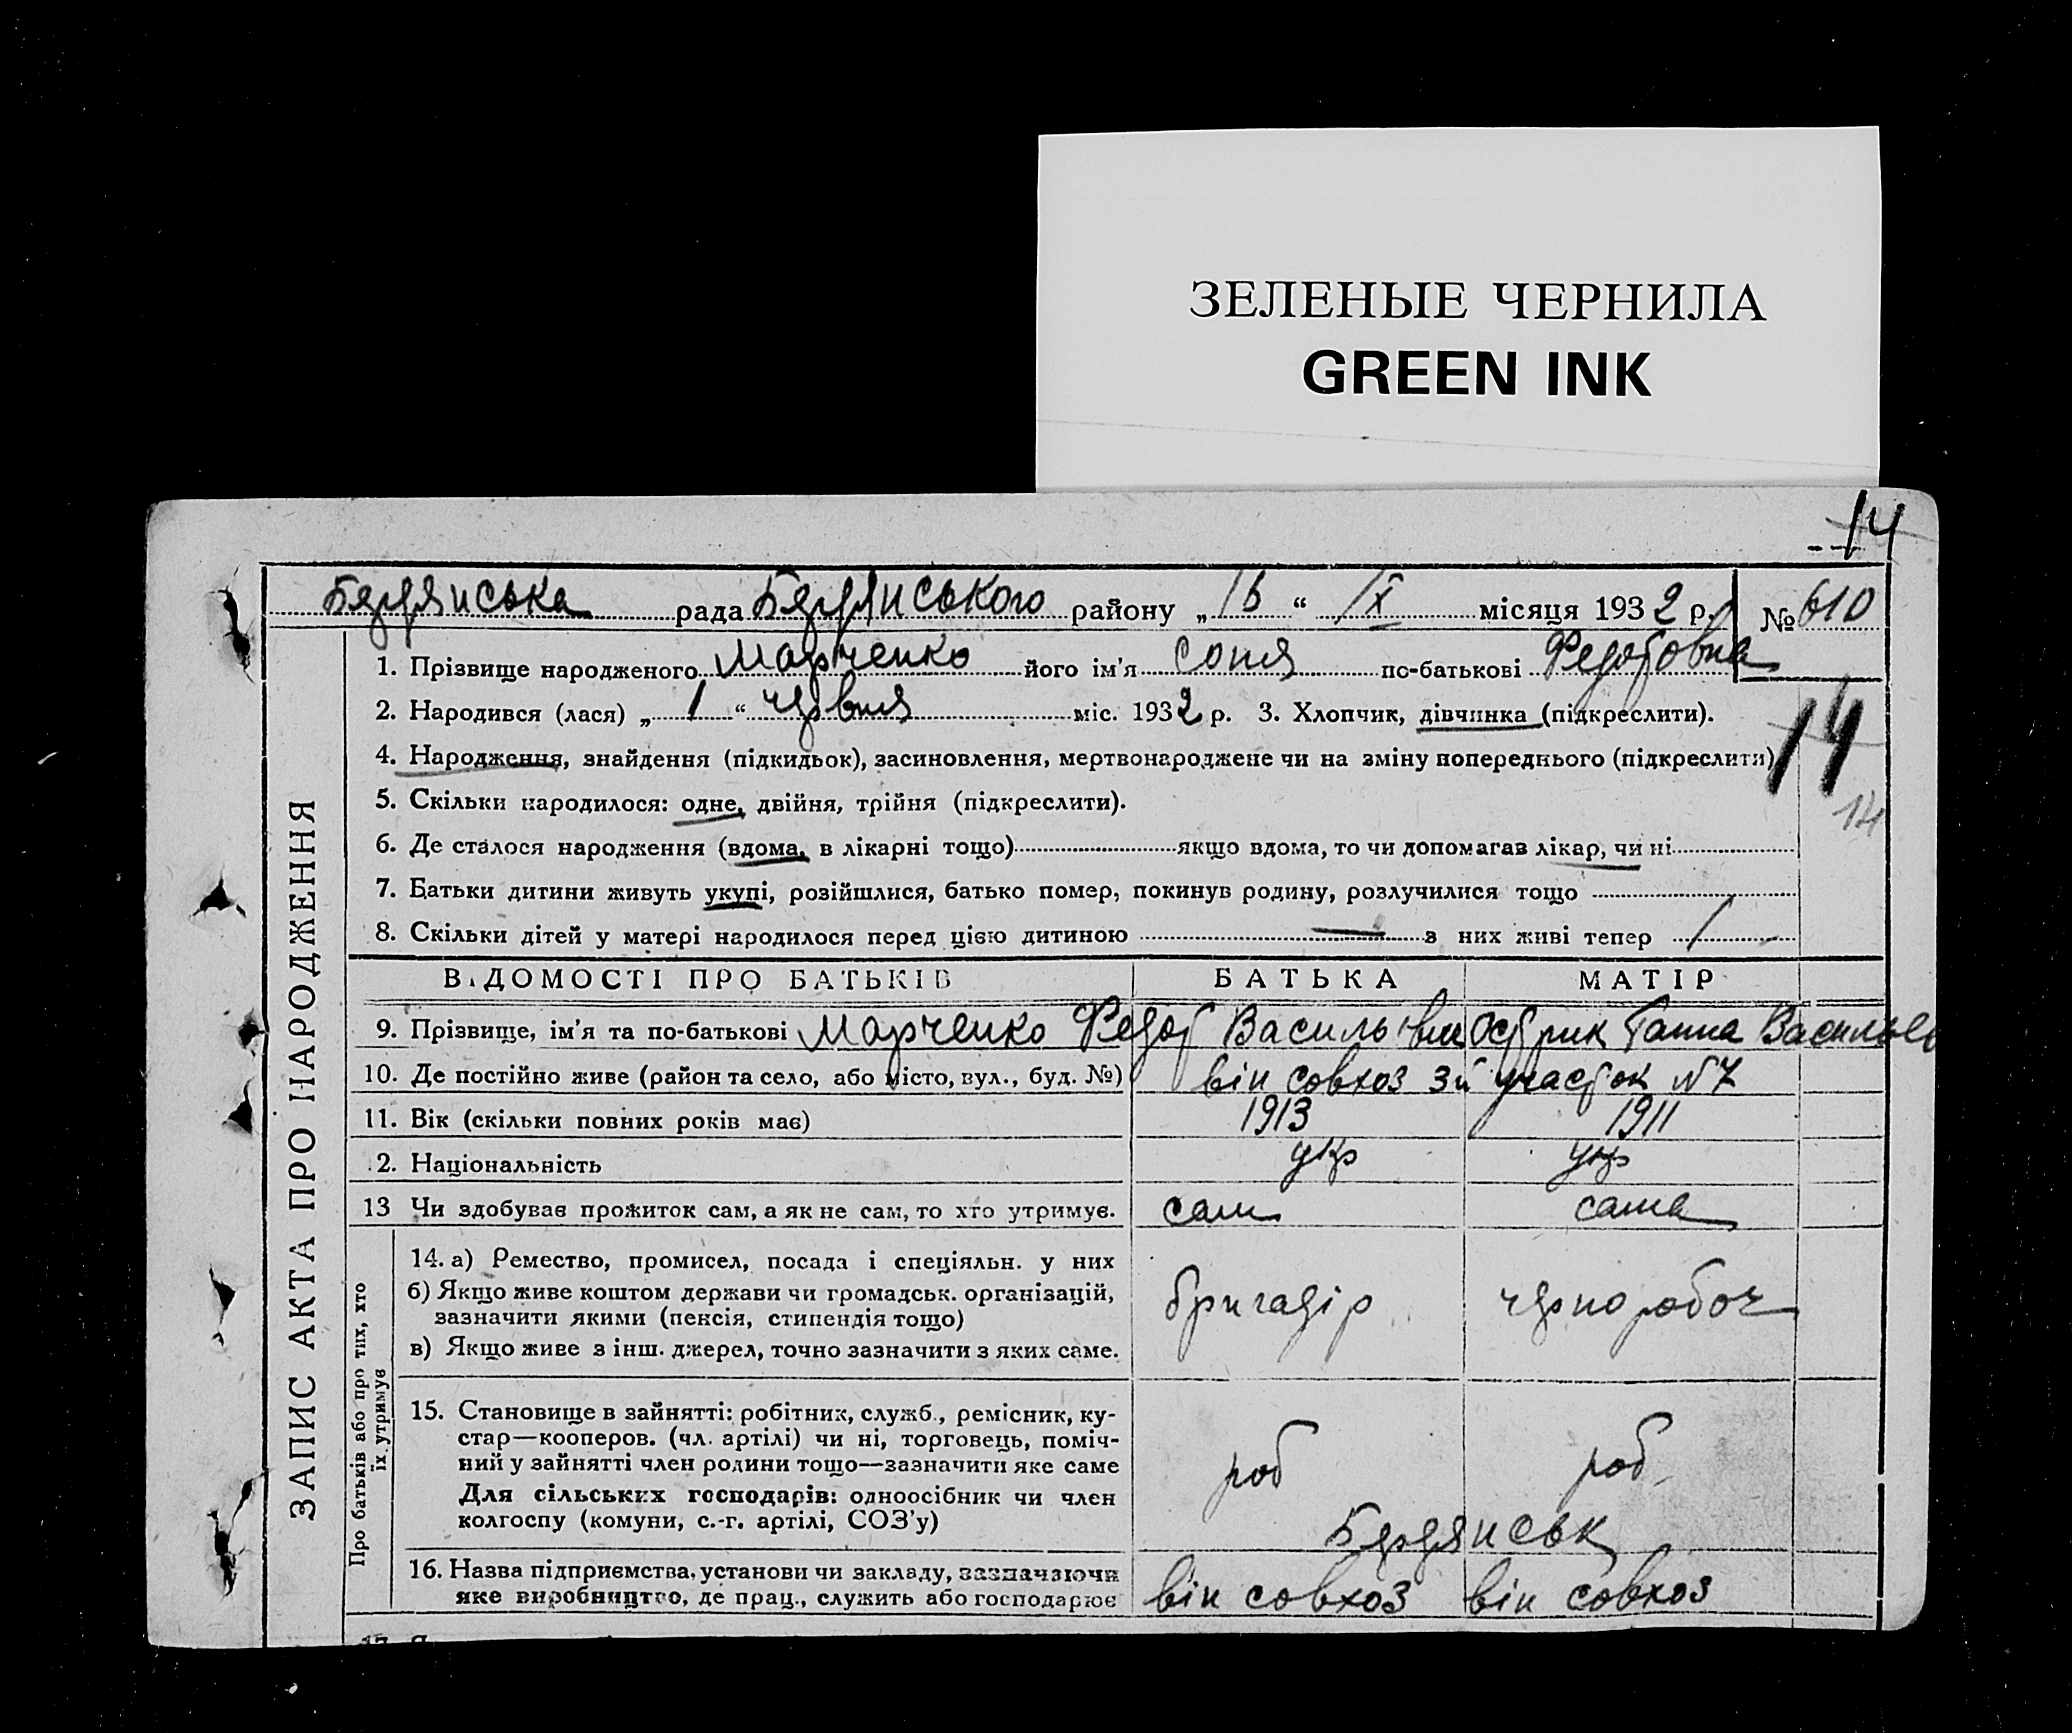 ЗЕЛЕНЫЕ ЧЕРНИЛА
GREEN INK
14
Бердянська рада Бердянського району „ 16 “ IX місяця 1932 р. № 610
ЗАПИС АКТА ПРО НАРОДЖЕННЯ
1. Прізвище народженого Марченко його ім'я Соня по-батькові Федотовна
2. Народився (лася) „ 1 “ червня міс. 1932 р. 3. Хлопчик, дівчинка (підкреслити).
14
4. Народження, знайдення (підкидьок), засиновлення, мертвонароджене чи на зміну попереднього (підкреслити)
5. Скільки народилося: одне, двійня, трійня (підкреслити).
14
6. Де сталося народження (вдома, в лікарні тощо) якщо вдома, то чи допомагав лікар, чи ні
7. Батьки дитини живуть укупі, розійшлися, батько помер, покинув родину, розлучилися тощо
8. Скільки дітей у матері народилося перед цією дитиною — з них живі тепер /
ВІДОМОСТІ ПРО БАТЬКІВ БАТЬКА МАТІР
9. Прізвище, ім'я та по-батькові Марченко Федот Васильович Острик Ганна Васильев
10. Де постійно живе (район та село, або місто, вул., буд. №) він совхоз 3й участок N7
11. Вік (скільки повних років має) 1913 1911
2. Національність укр укр
13 Чи здобував прожиток сам, а як не сам, то хто утримує. сам сама
Про батьків або про тих, хто
їх утримує
14. а) Ремество, промисел, посада і спеціяльн. у них
б) Якщо живе коштом держави чи громадськ. організацій,
зазначити якими (пенсія, стипендія тощо)
бригадір чернороботч
в) Якщо живе з інш. джерел, точно зазначити з яких саме.
15. Становище в зайнятті: робітник, служб., ремісник, ку-
стар—кооперов. (чл. артілі) чи ні, торговець, поміч-
ний у зайнятті член родини тощо—зазначити яке саме
роб роб
Для сільських господарів: одноосібник чи член
колгоспу (комуни, с.-г. артілі, СОЗ'у)
Бердянськ
16. Назва підприємства, установи чи закладу, зазначаючи
яке виробництво, де прац., служить або господарює
він совхоз він совхоз